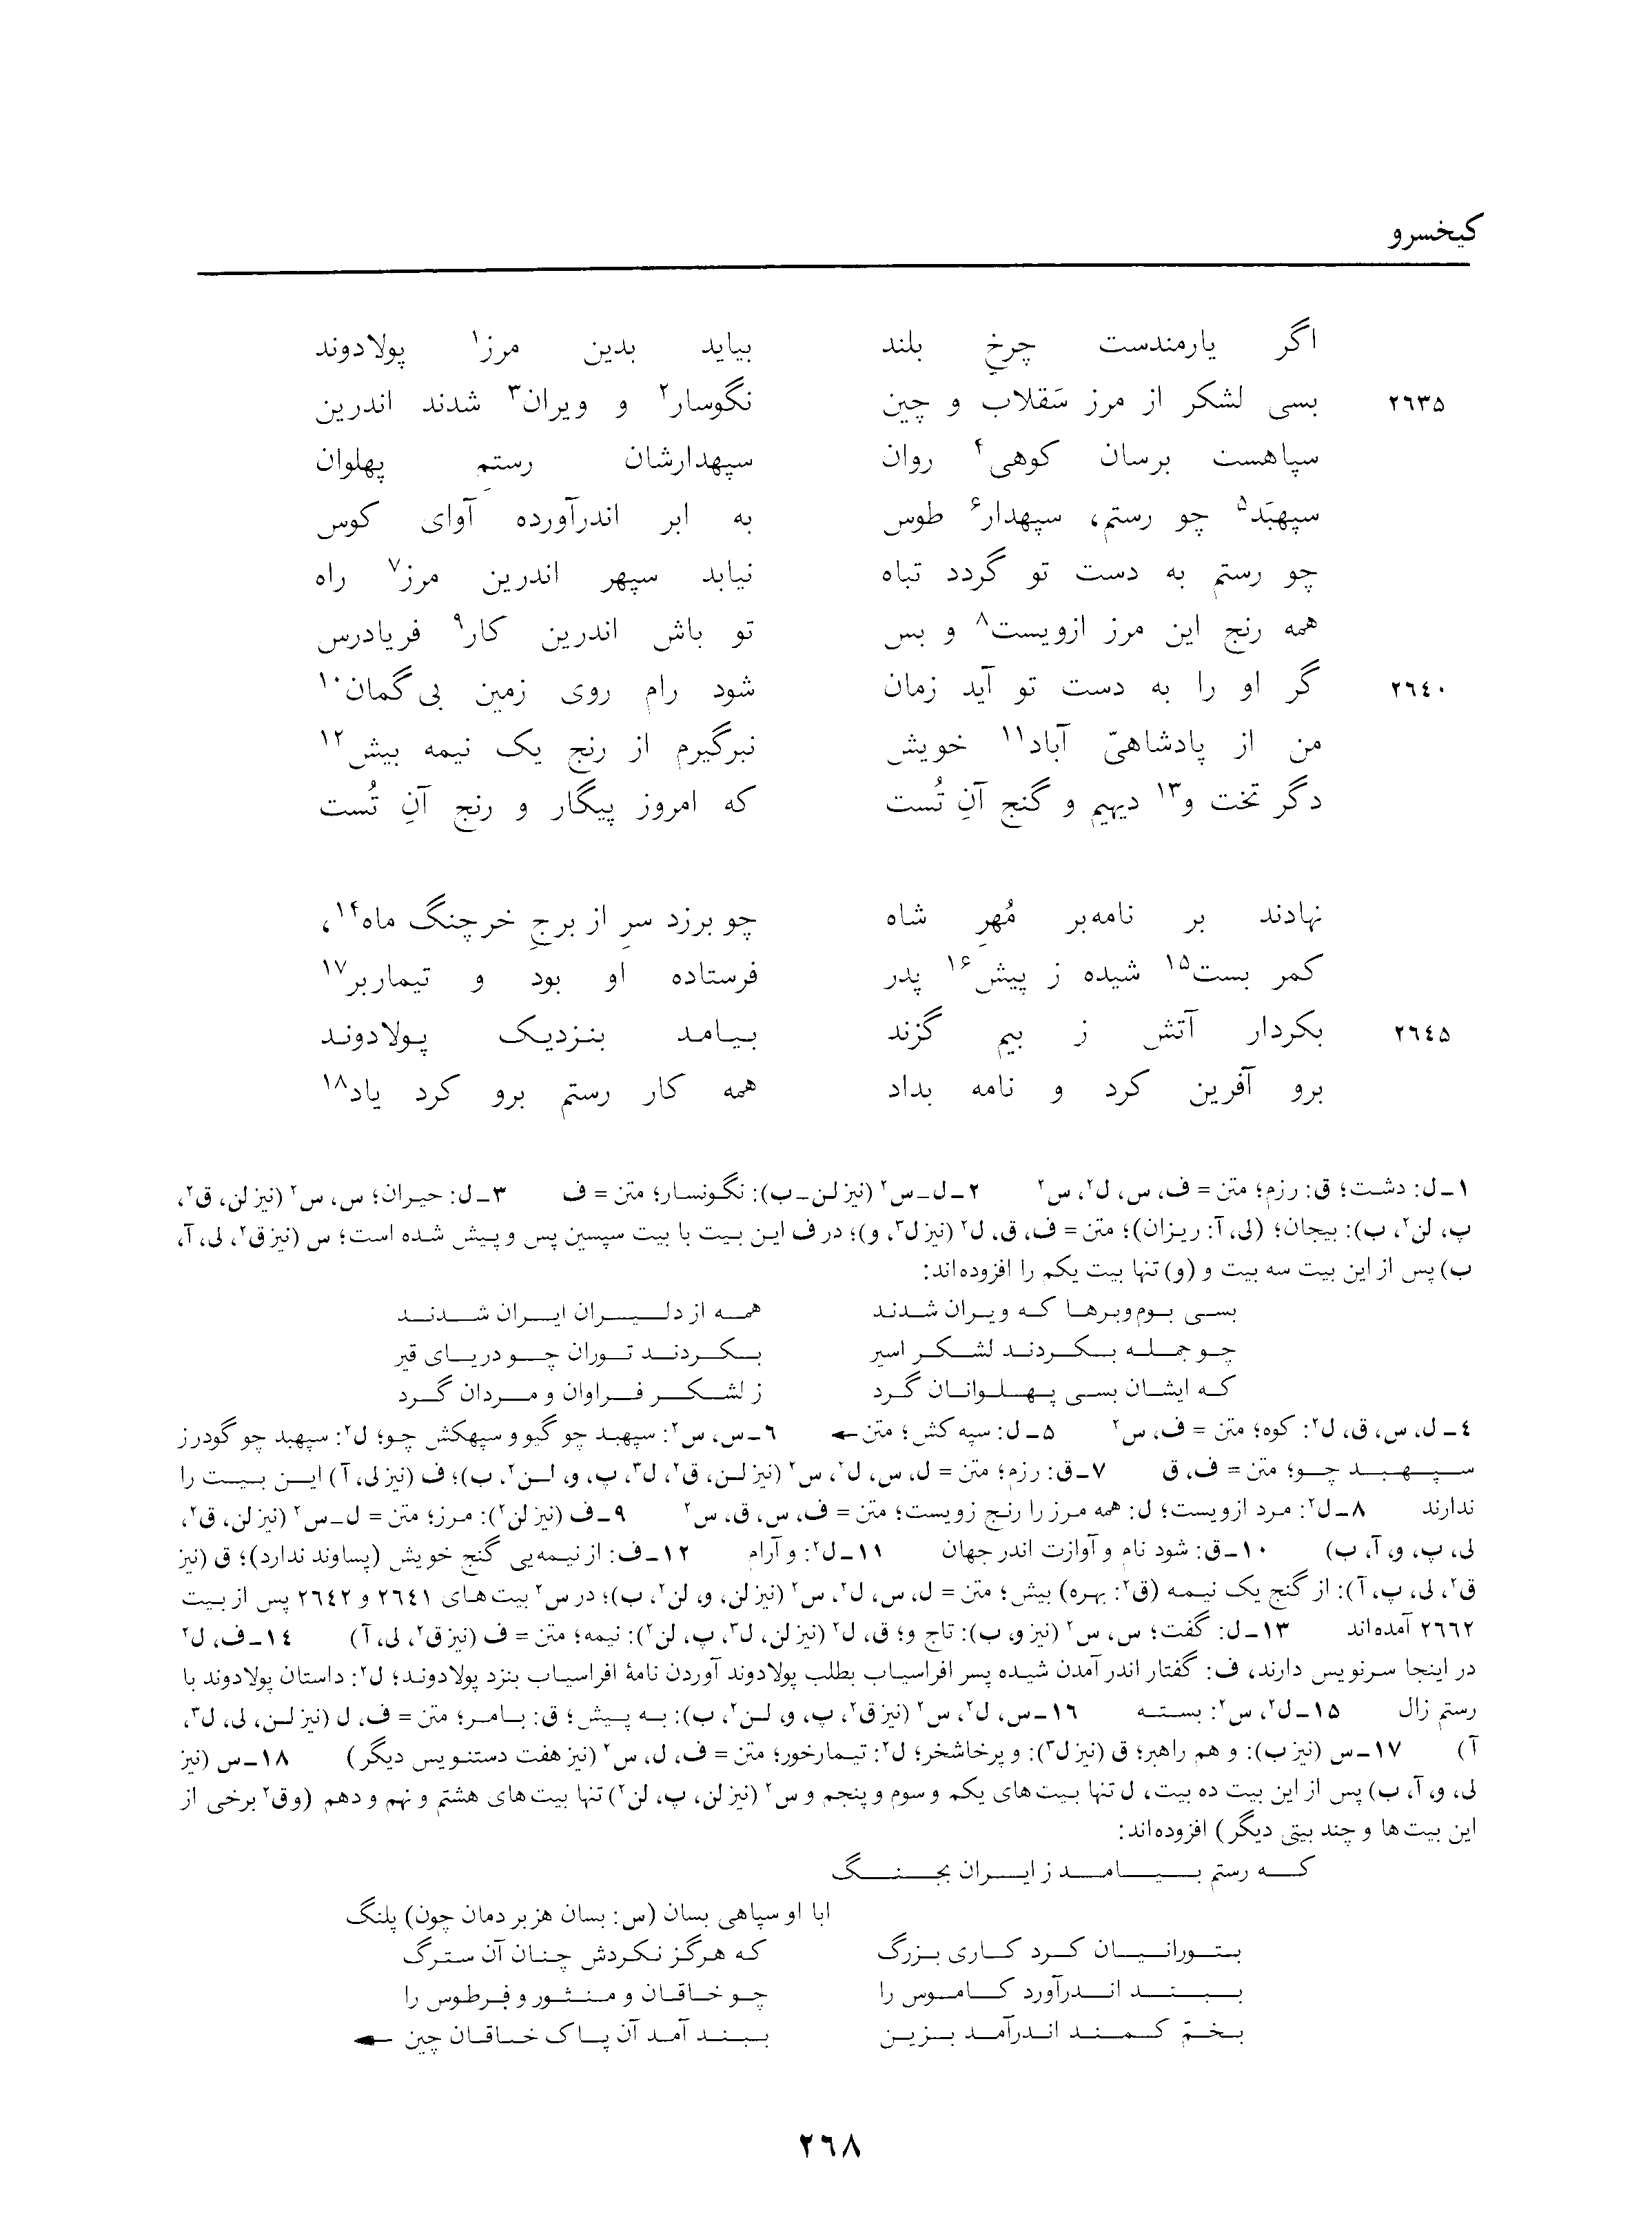 کیخسرو
اگر یارمندست چرخِ بلند بیاید بدین مرز۱ پولادوند
۲٦۳۵ بسی لشکر از مرز سَقلاب و چین نگوسار۲ و ویران۳ شدند اندرین
سپاهست برسان کوهی۴ روان سپهدارشان رستمِ پهلوان
سپهبَد۵ چو رستم، سپهدار۶ طوس به ابر اندرآورده آوای کوس
چو رستم به دست تو گردد تباه نیابد سپهر اندرین مرز۷ راه
همه رنج این مرز ازویست۸ و بس تو باش اندرین کار۹ فریادرس
۲٦٤۰ گر او را به دست تو آید زمان شود رام روی زمین بی گمان۱۰
من از پادشاهیّ آباد۱۱ خویش نبرگیرم از رنج یک نیمه بیش۱۲
دگر تخت و۱۳ دیهیم و گنج آنِ تُست که امروز پیگار و رنج آنِ تُست
نهادند بر نامه‌بر مُهرِ شاه چو برزد سرِ از برجِ خرچنگ ماه۱۴،
کمر بست۱۵ شیده ز پیش۱۶ پدر فرستاده او بود و تیماربر۱۷
۲٦٤۵ بکردار آتش ز بیم گزند بیامد بنزدیک پولادوند
برو آفرین کرد و نامه بداد همه کار رستم برو کرد یاد۱۸
۱ـ ل: دشت؛ ق: رزم؛ متن = ف، س، ل۲، س۲ ۲ـ ل ـ س۲ (نیز لن ـ ب): نگونسار؛ متن = ف ۳ـ ل: حیران؛ س، س۲ (نیز لن، ق۲،
پ، لن۲، ب): بیجان؛ (لی، آ: ریزان)؛ متن = ف، ق، ل۲ (نیز ل۳، و)؛ در ف این بیت با بیت سپسین پس و پیش شده است؛ س (نیز ق۲، لی، آ،
ب) پس از این بیت سه بیت و (و) تنها بیت یکم را افزوده‌اند:
بسی بوم‌وبرها که ویران شدند همه از دلیران ایران شدند
چو جمله بکردند لشکر اسیر بکردند توران چو دریای قیر
که ایشان بسی پهلوانان گرد ز لشکر فراوان و مردان گرد
٤ـ ل، س، ق، ل۲: کوه؛ متن = ف، س۲ ۵ـ ل: سپه کش؛ متن ← ٦ـ س، س۲: سپهبد چو گیو و سپهکش چو؛ ل۲: سپهبد چو گودرز
سپهبد چو؛ متن = ف، ق ۷ـ ق: رزم؛ متن = ل، س، ل۲، س۲ (نیز لن، ق۲، ل۳، پ، و، لن۲، ب)؛ ف (نیز لی، آ) این بیت را
ندارند ۸ـ ل۲: مرد ازویست؛ ل: همه مرز را رنج زویست؛ متن = ف، س، ق، س۲ ۹ـ ف (نیز لن۲): مرز؛ متن = ل ـ س۲ (نیز لن، ق۲،
لی، پ، و، آ، ب) ۱۰ـ ق: شود نام و آوازت اندر جهان ۱۱ـ ل۲: و آرام ۱۲ـ ف: از نیمه‌یی گنج خویش (پساوند ندارد)؛ ق (نیز
ق۲، لی، پ، آ): از گنج یک نیمه (ق۲: بهره) بیش؛ متن = ل، س، ل۲، س۲ (نیز لن، و، لن۲، ب)؛ در س۲ بیت‌های ۲٦٤۱ و ۲٦٤۲ پس از بیت
۲٦٦۲ آمده‌اند ۱۳ـ ل: گفت؛ س، س۲ (نیز و، ب): تاج و؛ ق، ل۲ (نیز لن، ل۳، پ، لن۲): نیمه؛ متن = ف (نیز ق۲، لی، آ) ۱٤ـ ف، ل۲
در اینجا سرنویس دارند، ف: گفتار اندر آمدن شیده پسر افراسیاب بطلب پولادوند آوردن نامهٔ افراسیاب بنزد پولادوند؛ ل۲: داستان پولادوند با
رستم زال ۱۵ـ ل۲، س۲: بسته ۱٦ـ س، ل۲، س۲ (نیز ق۲، پ، و، لن۲، ب): به پیش؛ ق: بامر؛ متن = ف، ل (نیز لن، لی، ل۳،
آ) ۱۷ـ س (نیز ب): و هم راهبر؛ ق (نیز ل۳): و پرخاشخر؛ ل۲: تیمارخور؛ متن = ف، ل، س۲ (نیز هفت دستنویس دیگر) ۱۸ـ س (نیز
لی، و، آ، ب) پس از این بیت ده بیت، ل تنها بیت‌های یکم و سوم و پنجم و س۲ (نیز لن، پ، لن۲) تنها بیت‌های هشتم و نهم و دهم (و ق۲ برخی از
این بیت ها و چند بیتی دیگر) افزوده‌اند:
که رستم بیامد ز ایران بجنگ
ابا او سپاهی بسان (س: بسان هزبر دمان چون) پلنگ
بتورانیان کرد کاری بزرگ که هرگز نکردش چنان آن سترگ
ببند اندرآورد کاموس را چو خاقان و منثور و فرطوس را
بخمّ کمند اندرآمد بزین ببند آمد آن پاک خاقان چین ←
۲٦۸